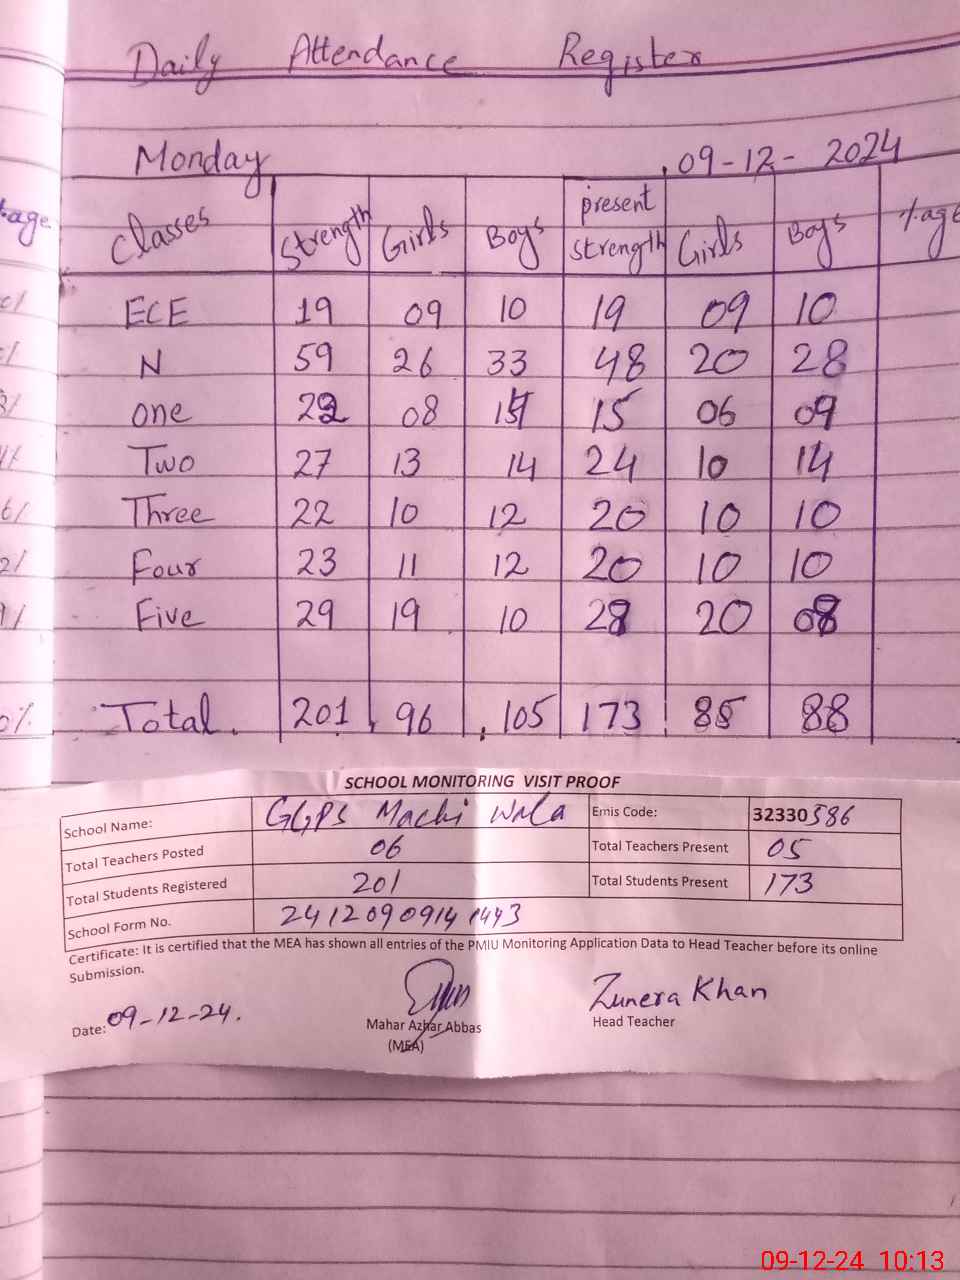 Daily Attendance Register
Monday 09-12-2024
Classes Strength Girls Boys present strength Girls Boys %age
ECE 19 09 10 19 09 10
N 59 26 33 48 20 28
one 22 08 14 15 06 09
Two 27 13 14 24 10 14
Three 22 10 12 20 10 10
Four 23 11 12 20 10 10
Five 29 19 10 28 20 08
Total. 201 96 105 173 85 88
SCHOOL MONITORING VISIT PROOF
School Name: GGPS Machi Wala Emis Code: 32330586
Total Teachers Posted 06 Total Teachers Present 05
Total Students Registered 201 Total Students Present 173
School Form No. 24120909141443
Certificate: It is certified that the MEA has shown all entries of the PMIU Monitoring Application Data to Head Teacher before its online
Submission.
Date: 09-12-24. Zunera Khan
Mahar Azhar Abbas Head Teacher
(MEA)
09-12-24 10:13